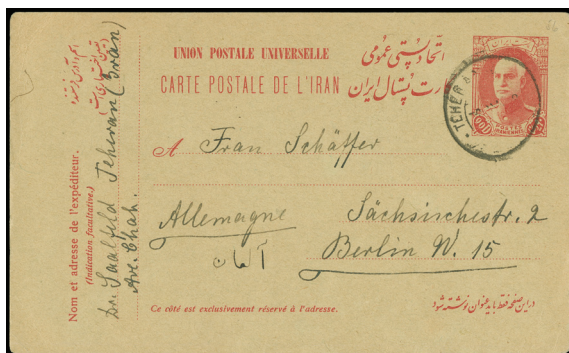 UNION POSTALE UNIVERSELLE
اتحاد پستی عمومی
CARTE POSTALE DE L'IRAN
کارت پستال ایران
TEHERAN
A Frau Schäffer
Allemagne
آلمان
Sächsischestr. 2
Berlin W. 15
Ce côté est exclusivement réservé à l'adresse.
در این صفحه فقط باید عنوان نوشته شود
Nom et adresse de l'expéditeur.
(Indication facultative.)
Dr. Saalfeld Teheran (Iran)
Ave. Chah.